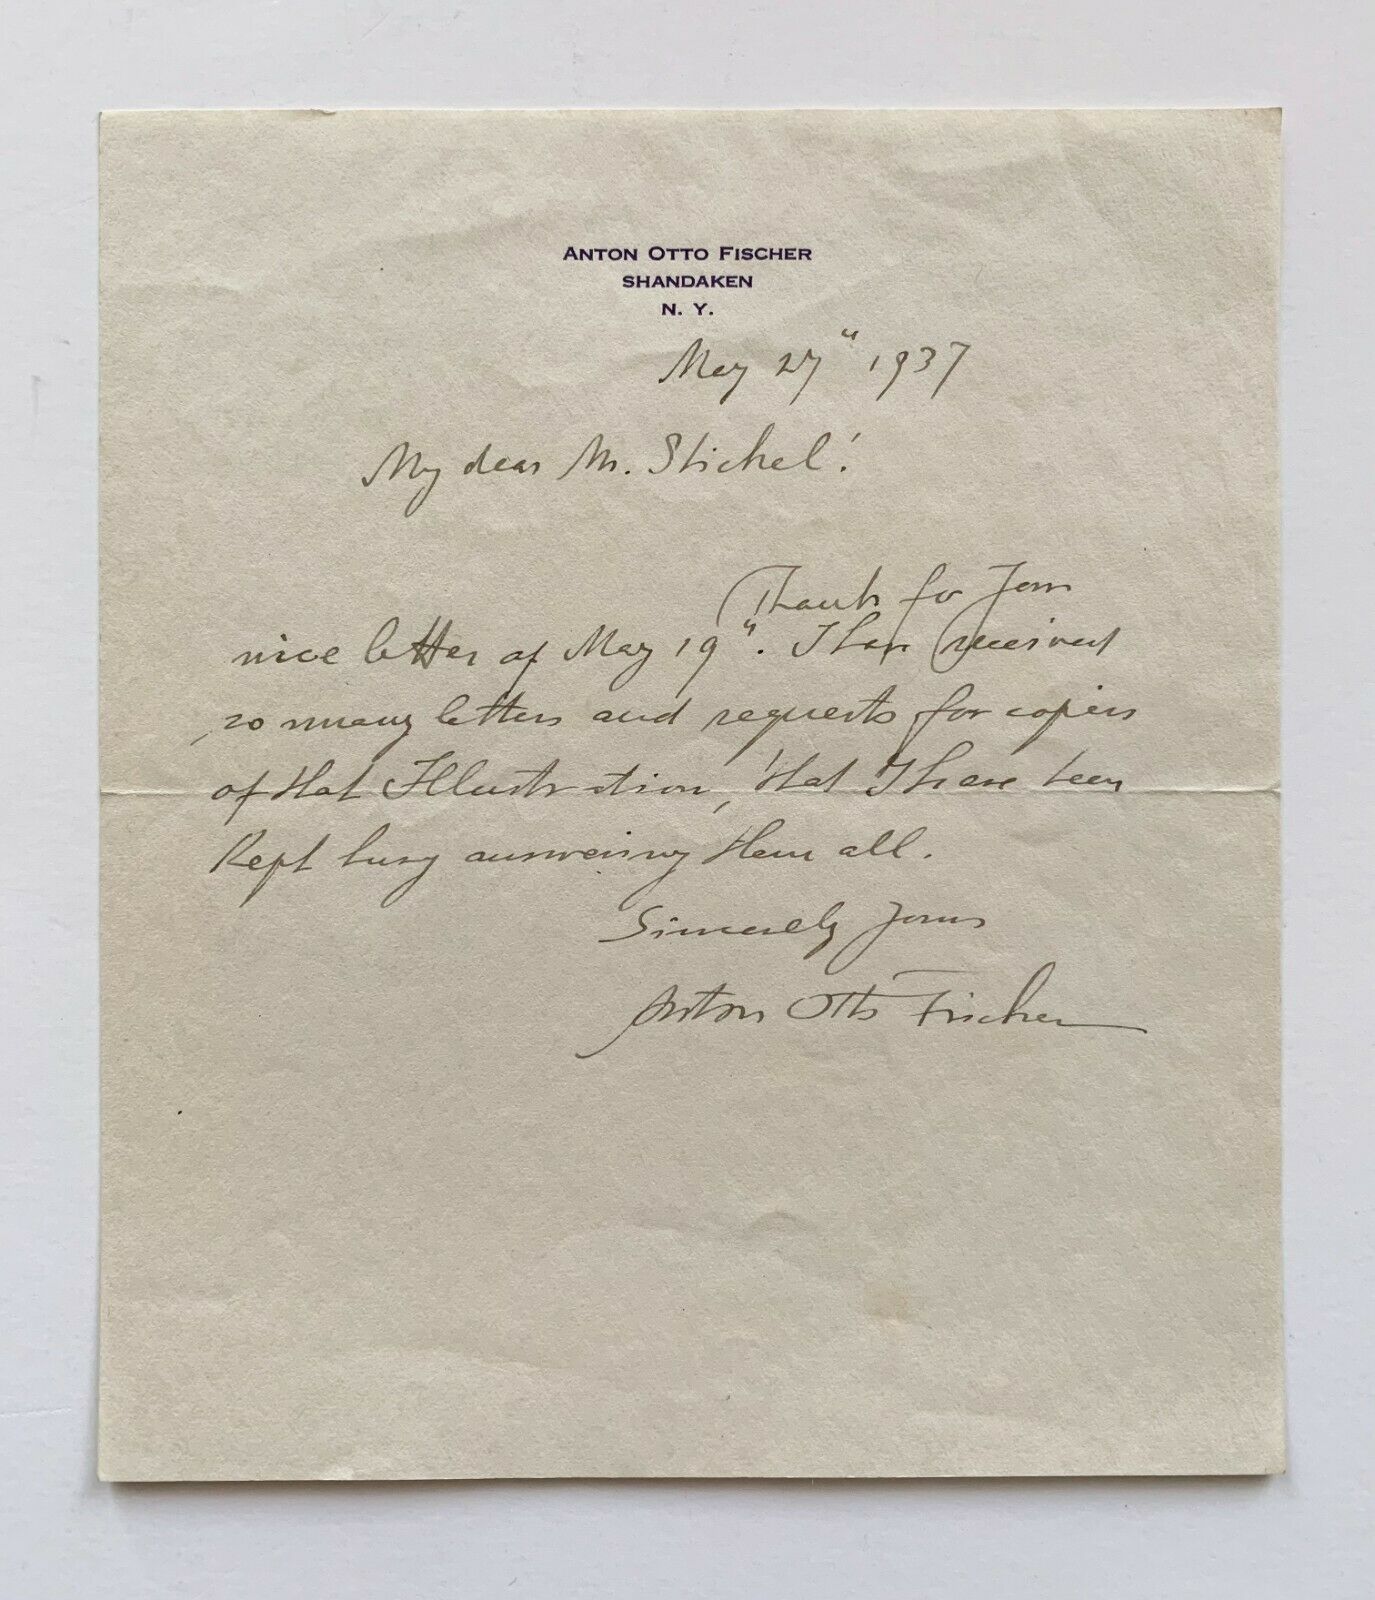 ANTON OTTO FISCHER
SHANDAKEN
N. Y.
May 27" 1937
My dear Mr. Stickel!
Thanks for Your
nice letter of May 19". I have received
so many letters and requests for copies
of that Illustration, that I have been
kept busy answering them all.
Sincerely Yours
Anton Otto Fischer